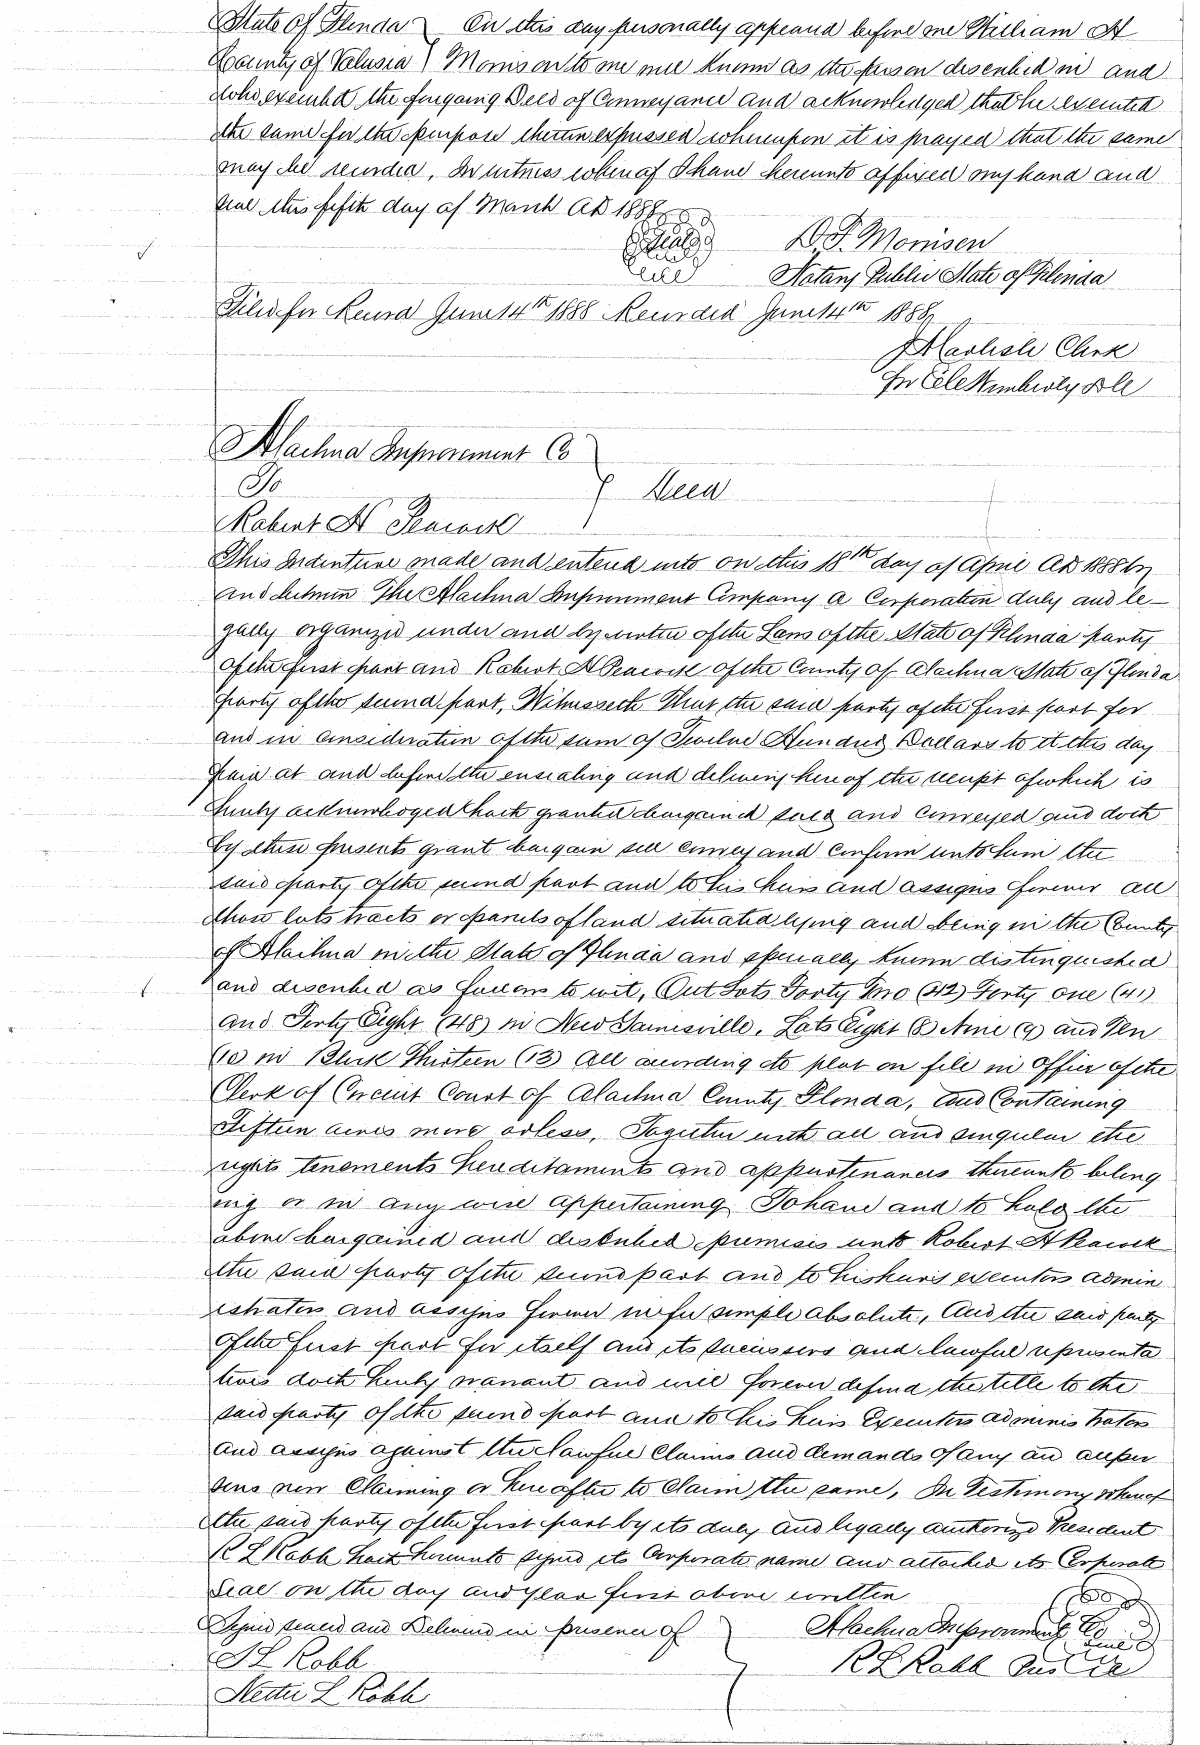 State of Florida } On this day personally appeared before me William A
County of Volusia } Morrison to me well known as the person described in and
who executed the foregoing Deed of Conveyance and acknowledged that he executed
the same for the purpose therein expressed whereupon it is prayed that the same
may be recorded, In witness whereof I have hereunto affixed my hand and
seal this fifth day of March AD 1888
Seal D. F. Morrison
Notary Public State of Florida
Filed for Record June 14th 1888 Recorded June 14th 1888
J A Carlisle Clerk
Alachua Improvement Co
To } Deed
Robert H Peacock
This Indenture made and entered into on this 18th day of April AD 1888 by
and between The Alachua Improvement Company a Corporation duly and le-
gally organized under and by virtue of the Laws of the State of Florida party
of the first part and Robert H Peacock of the County of Alachua State of Florida
party of the second part, Witnesseth That the said party of the first part for
and in consideration of the sum of Twelve Hundred Dollars to it this day
paid at and before the ensealing and delivery hereof the receipt of which is
hereby acknowledged hath granted bargained sold and conveyed and doth
by these presents grant bargain sell convey and confirm unto him the
said party of the second part and to his heirs and assigns forever all
those lots tracts or parcels of land situated lying and being in the County
of Alachua in the State of Florida and specially known distinguished
and described as follows to wit, Out Lots Forty Two (42) Forty one (41)
and Forty Eight (48) in New Gainesville. Lots Eight (8) Nine (9) and Ten
(10 in Block Thirteen (13) All according to plat on file in Office of the
Clerk of Circuit Court of Alachua County Florida, and Containing
Fifteen acres more or less, Together with all and singular the
rights tenements hereditaments and appurtenances thereunto belong
ing or in any wise appertaining To have and to hold the
above bargained and described premises unto Robert H Peacock
the said party of the second part and to his heirs executors admin
istrators and assigns forever in fee simple absolute, And the said party
of the first part for itself and its successors and lawful representa
tives doth hereby warrant and will forever defend the title to the
said party of the second part and to his heirs Executors administrators
and assigns against the lawful Claims and demands of any an all per
sons now Claiming or hereafter to Claim the same, In Testimony whereof
the said party of the first part by its duly and legally authorized President
R L Robb hath hereunto signed its Corporate name and attached its Corporate
seal on the day and year first above written
Signed sealed and Delivered in presence of } Alachua Improvement Co
S L Robb R L Robb
Nettie L Robb